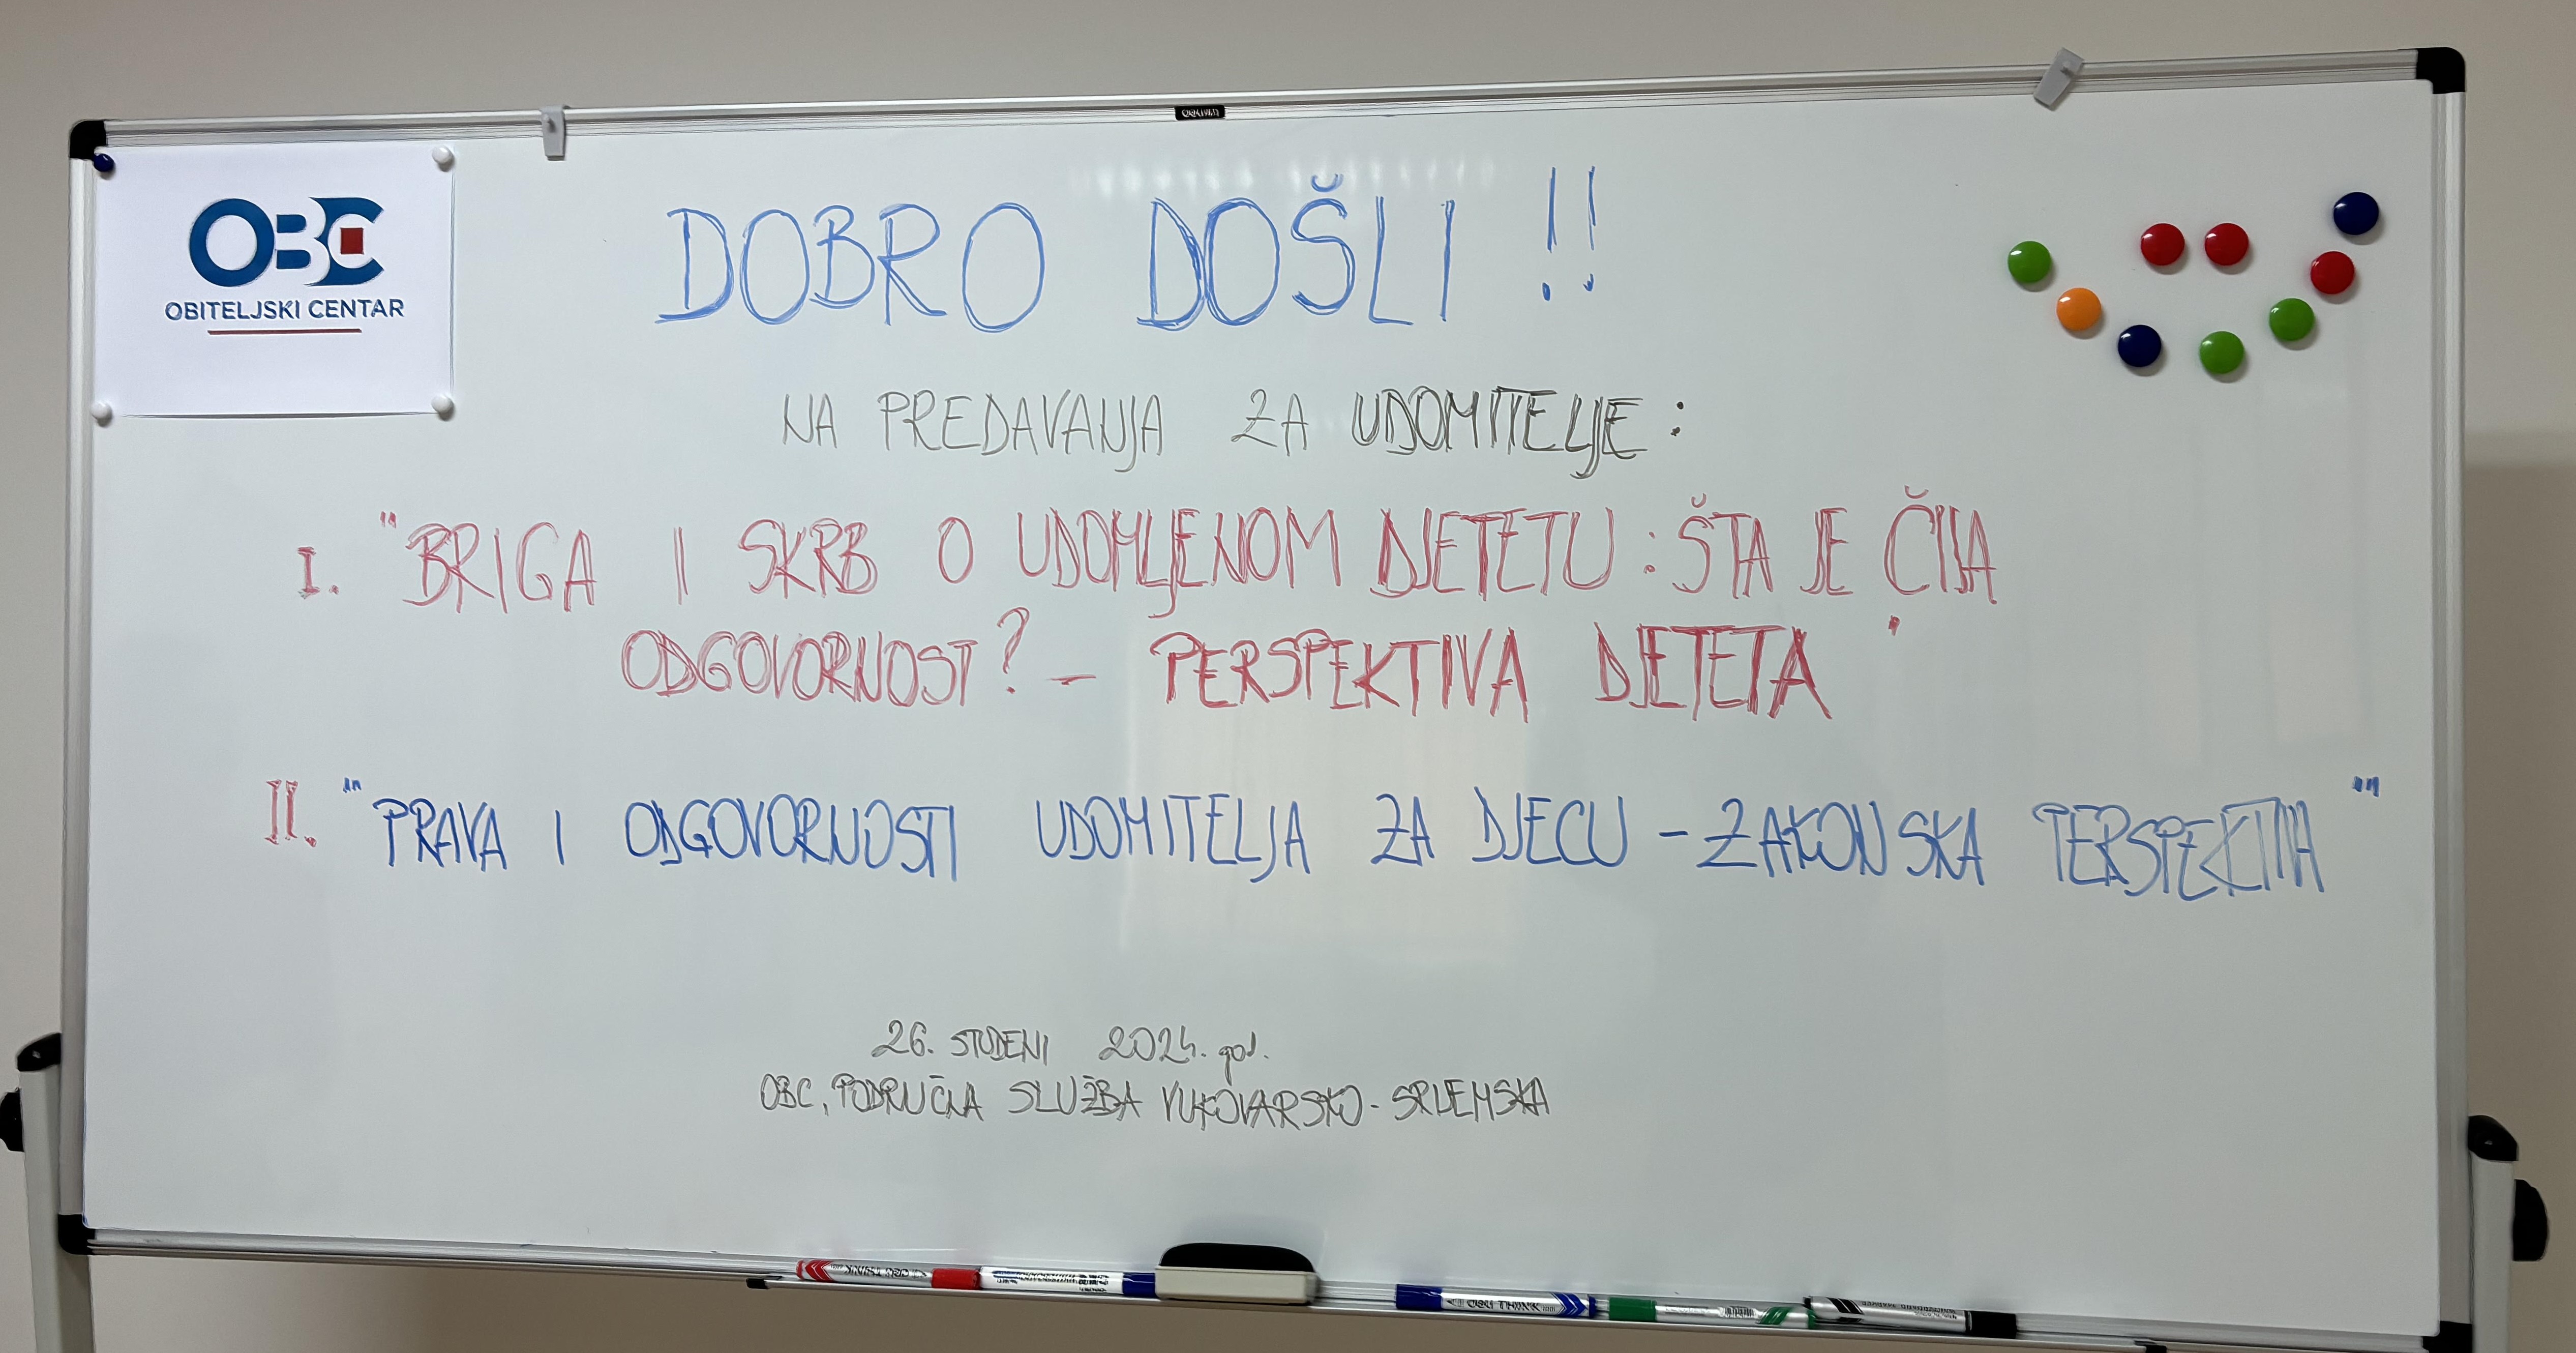 OBC
OBITELJSKI CENTAR
DOBRO DOŠLI !!
NA PREDAVANJA ZA UDOMITELJE:
I. "BRIGA I SKRB O UDOMLJENOM DJETETU: ŠTA JE ČIJA
ODGOVORNOST? – PERSPEKTIVA DJETETA"
II. "PRAVA I ODGOVORNOSTI UDOMITELJA ZA DJECU - ZAKONSKA PERSPEKTIVA"
26. STUDENI 2024. god.
OBC, PODRUČNA SLUŽBA VUKOVARSKO-SRIJEMSKA